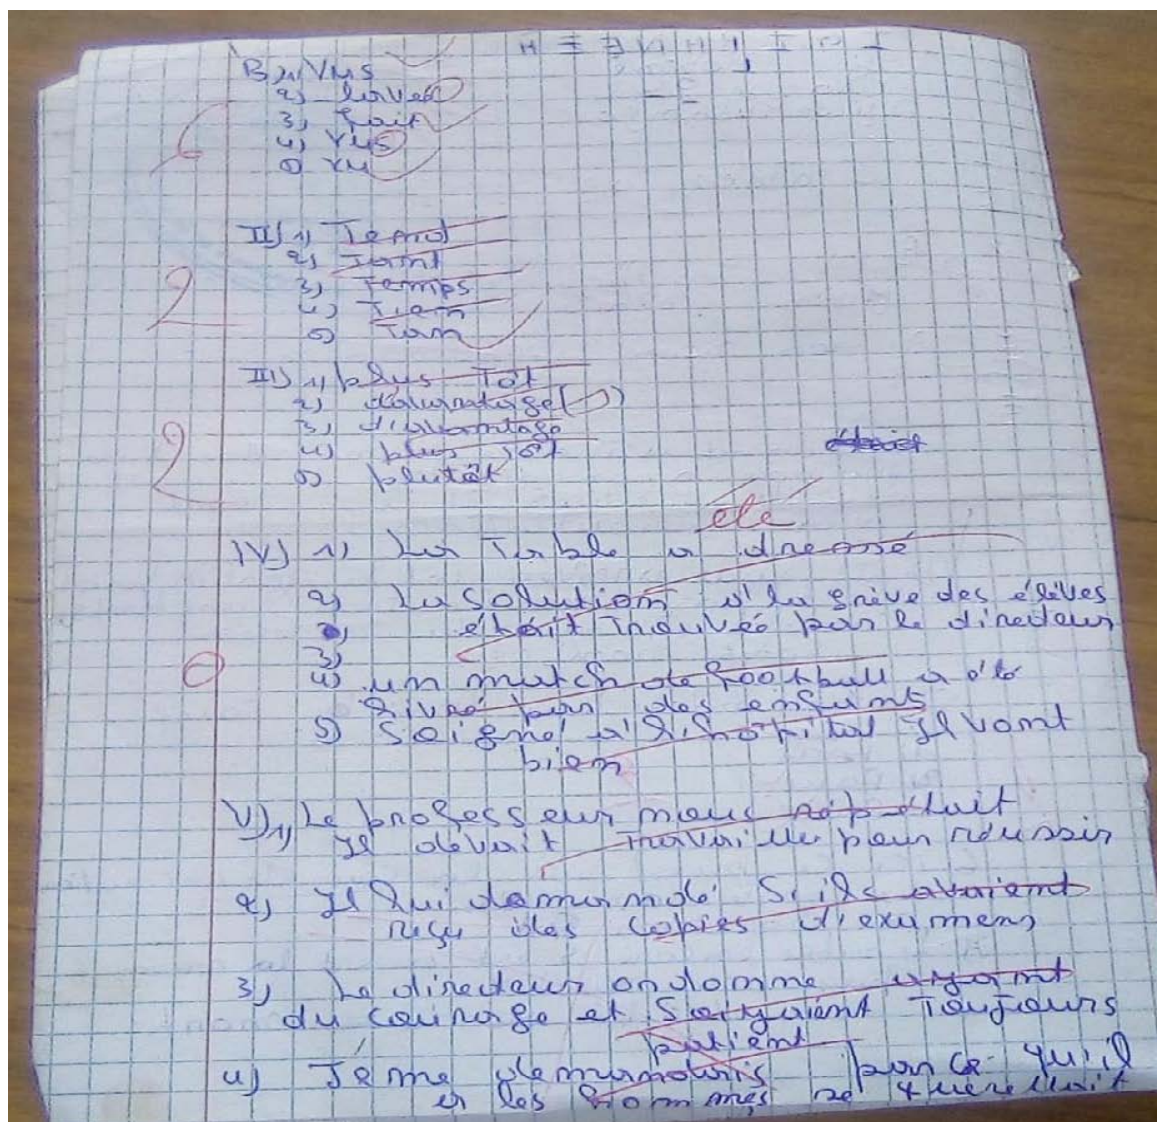 B 1) Vus
2) livées
3) fait
4) Vus
5) vu
6
II) 1) Tend
2) Tant
3) Temps
4) Tien
5) Tan
2
III) 1) plus Tôt
2) davantage
3) d'avantage
4) plus tôt
5) plutôt
2
été
IV) 1) La Table a dressé
2) La solution a la grève des élèves
était Trouvée par le directeur
3)
4) un match de football a été
livré par des enfants
5) Soigné a l'hôpital Il vont
bien
0
V) 1) Le professeur nous répétait
Il devait Travaille pour réussir
2) Il lui demandé Si ils avaient
reçu des copies d'examens
3) Le directeur ordonne ayant
du courage et Soiyaient Toujours
patient
4) Je me demandais par ce qu'il
les hommes se querellait